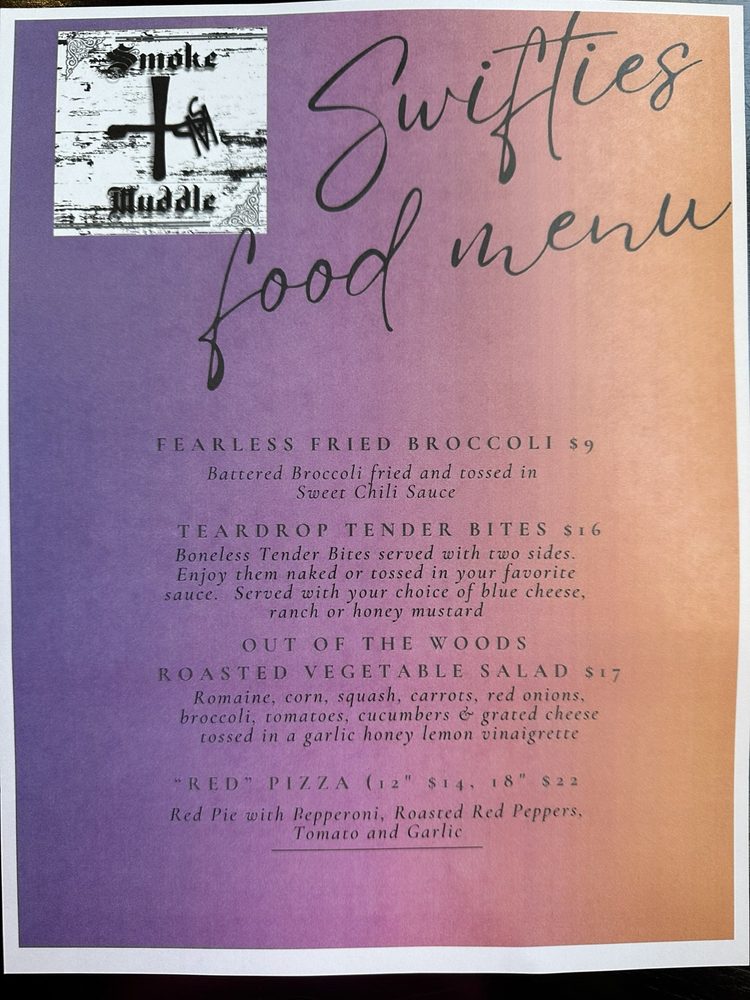 Smoke
Muddle
Swifties
food menu
FEARLESS FRIED BROCCOLI $9
Battered Broccoli fried and tossed in
Sweet Chili Sauce
TEARDROP TENDER BITES $16
Boneless Tender Bites served with two sides.
Enjoy them naked or tossed in your favorite
sauce. Served with your choice of blue cheese,
ranch or honey mustard
OUT OF THE WOODS
ROASTED VEGETABLE SALAD $17
Romaine, corn, squash, carrots, red onions,
broccoli, tomatoes, cucumbers & grated cheese
tossed in a garlic honey lemon vinaigrette
“RED” PIZZA (12" $14, 18" $22
Red Pie with Pepperoni, Roasted Red Peppers,
Tomato and Garlic